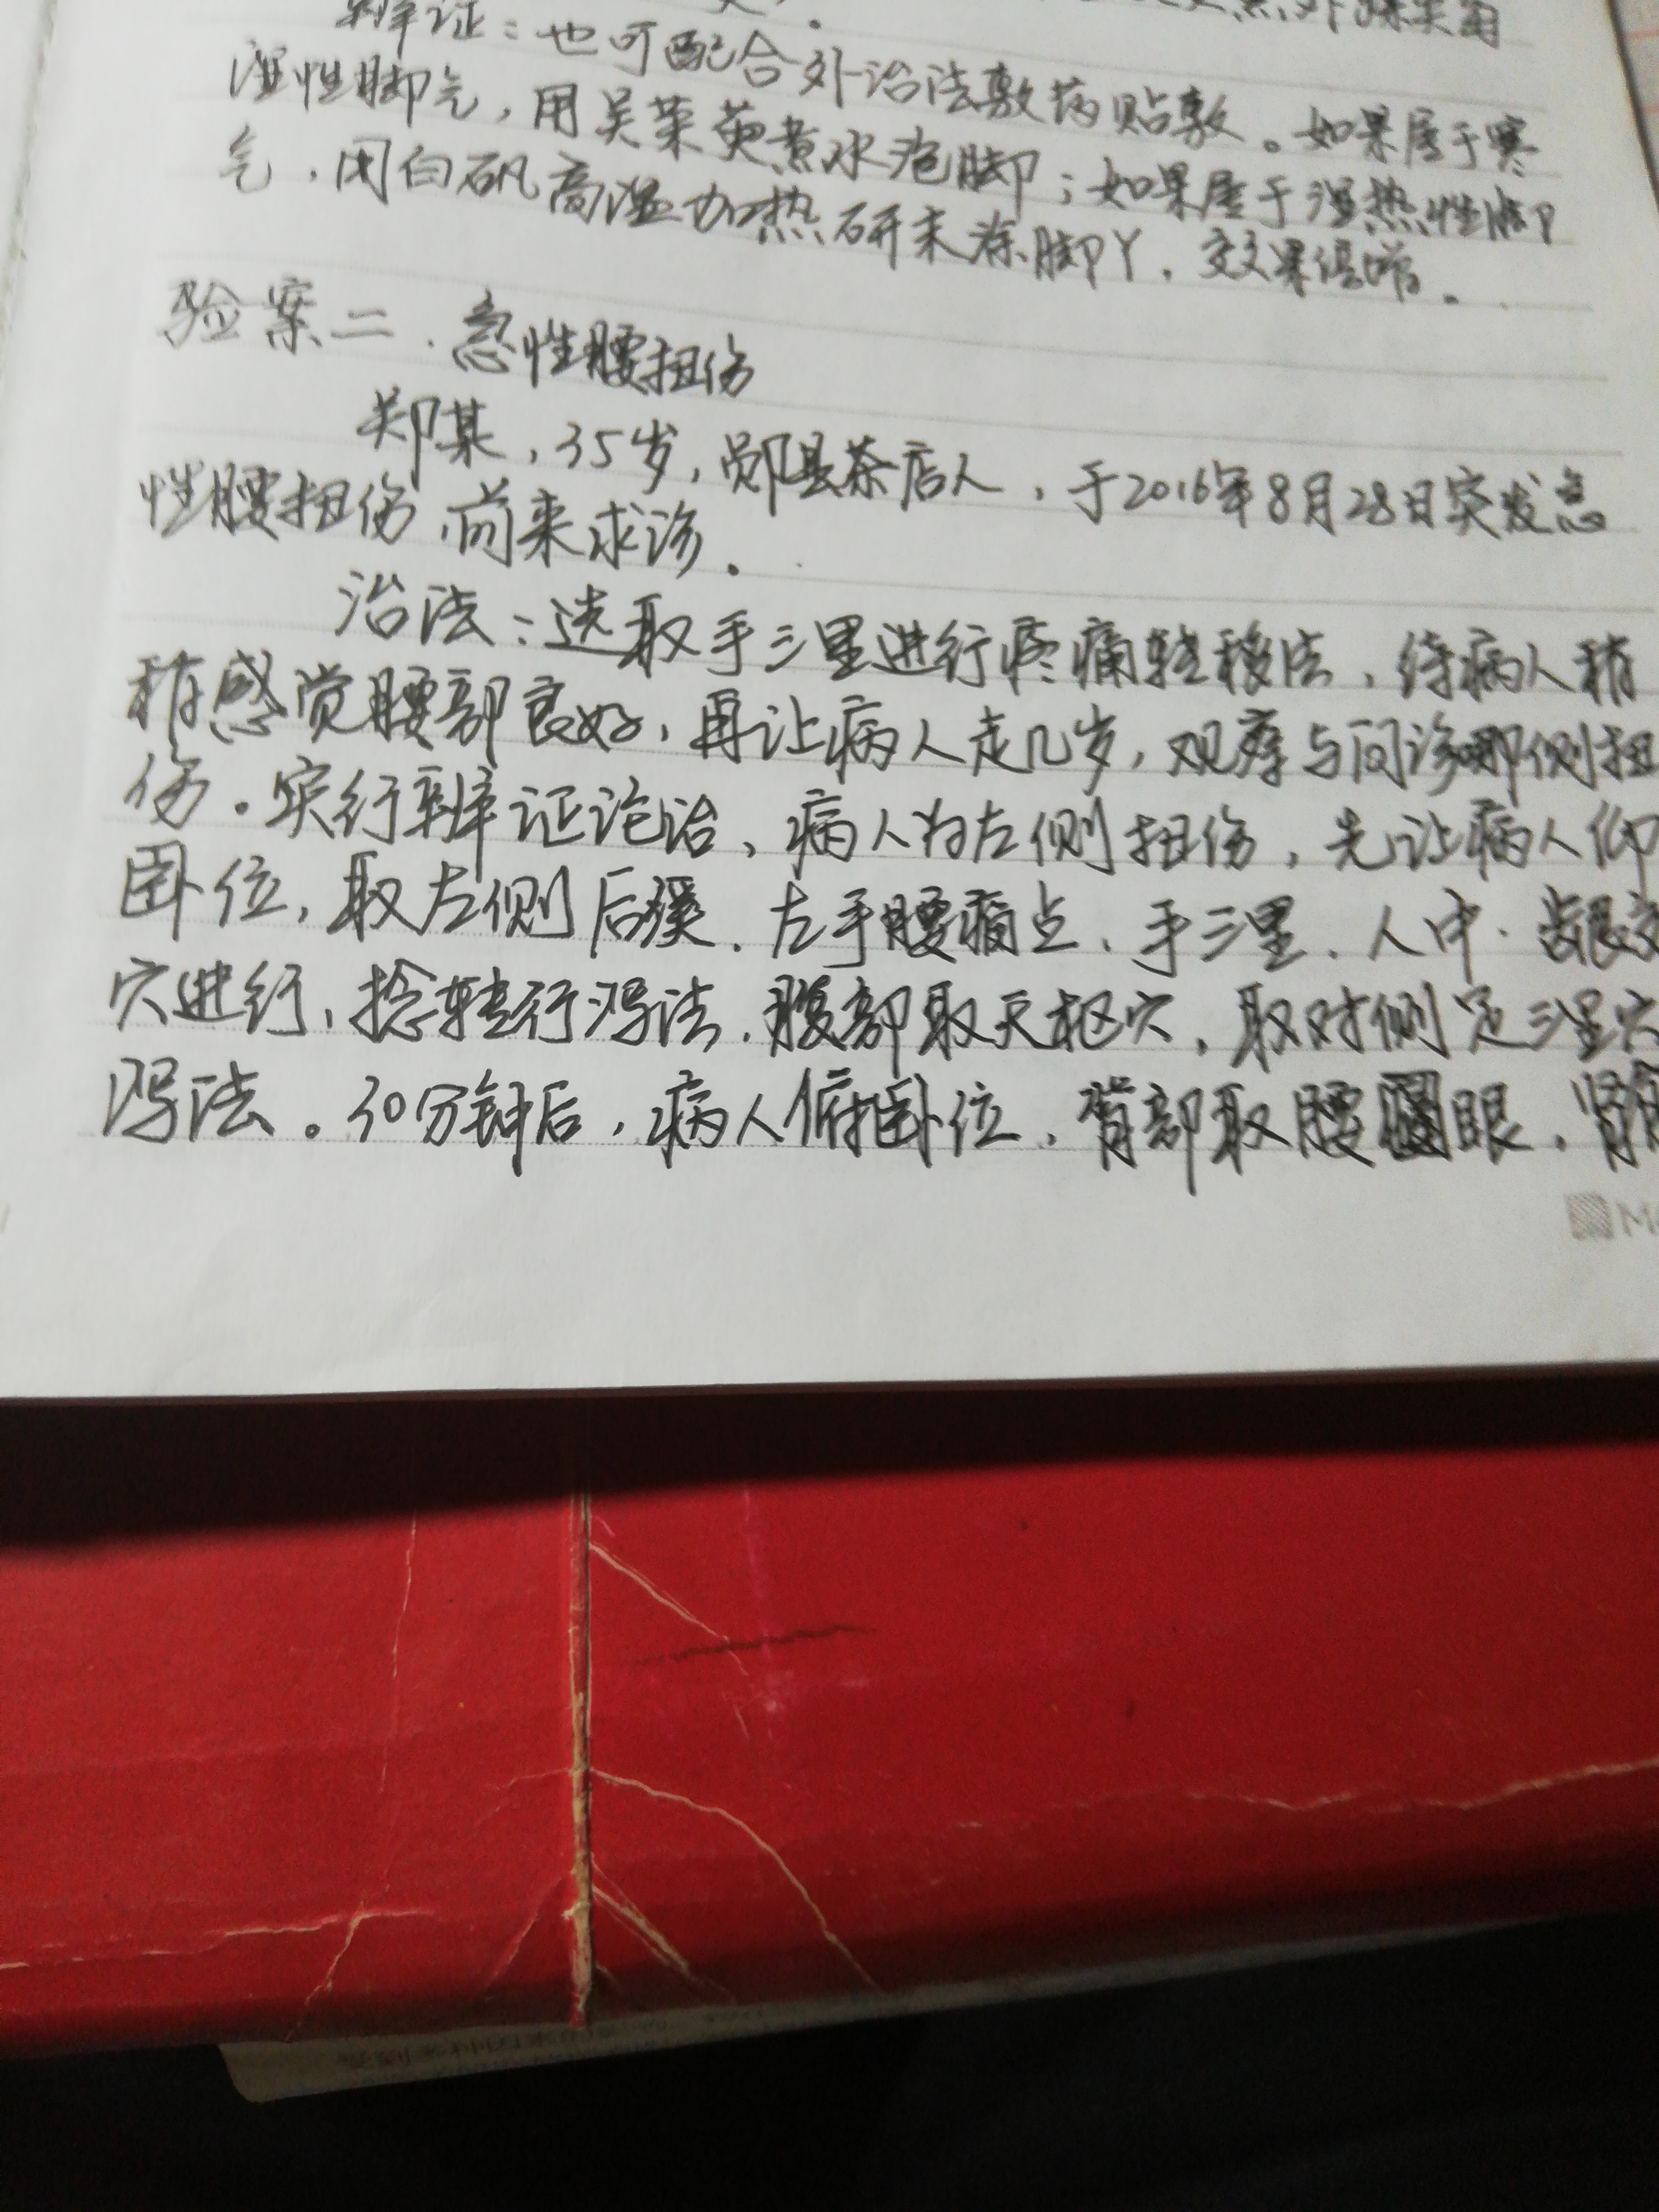 辩证：也可配合外治法敷药贴敷。如果属于寒
湿性脚气，用吴茱萸煮水泡脚；如果属于湿热性脚
气，用白矾高温加热研末涂脚丫，效果倍增。
验案二．急性腰扭伤
郑某，35岁，郧县茶店人，于2016年8月28日突发急
性腰扭伤，前来求诊。
治法：选取手三里进行疼痛转移法，待病人稍
稍感觉腰部良好，再让病人走几岁，观察与问诊哪侧扭
伤。实行辩证论治，病人为左侧扭伤，先让病人仰
卧位，取左侧后溪、左手腰痛点、手三里、人中、龈交
穴进行，捻转行泻法，腹部取天枢穴，取对侧足三里穴
泻法。30分钟后，病人俯卧位，背部取腰眼，肾